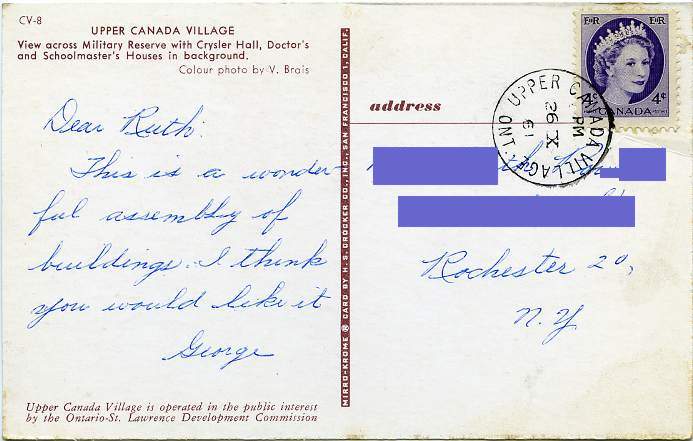 CV-8
UPPER CANADA VILLAGE
View across Military Reserve with Crysler Hall, Doctor's
and Schoolmaster's Houses in background.
Colour photo by V. Brais
Dear Ruth:
This is a wonder
ful assembly of
buildings. I think
you would like it
George
Upper Canada Village is operated in the public interest
by the Ontario-St. Lawrence Development Commission
MIRRO-KROME ® CARD BY H. S. CROCKER CO., INC., SAN FRANCISCO 1, CALIF.
address
EIIR EIIR
4¢ CANADA 4¢
UPPER CANADA VILLAGE ONT.
PM
26 X
61
Rochester 20,
N.Y.